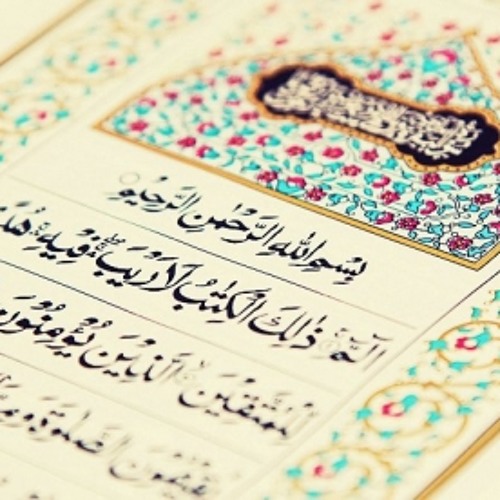 بِسْمِ اللهِ الرَّحْمٰنِ الرَّحِيْمِ
الٓمّٓ ذٰلِكَ الْكِتٰبُ لَا رَيْبَ فِيْهِ هُدًى
لِّلْمُتَّقِيْنَ الَّذِيْنَ يُؤْمِنُوْنَ
يُقِيْمُوْنَ الصَّلٰوةَ وَ